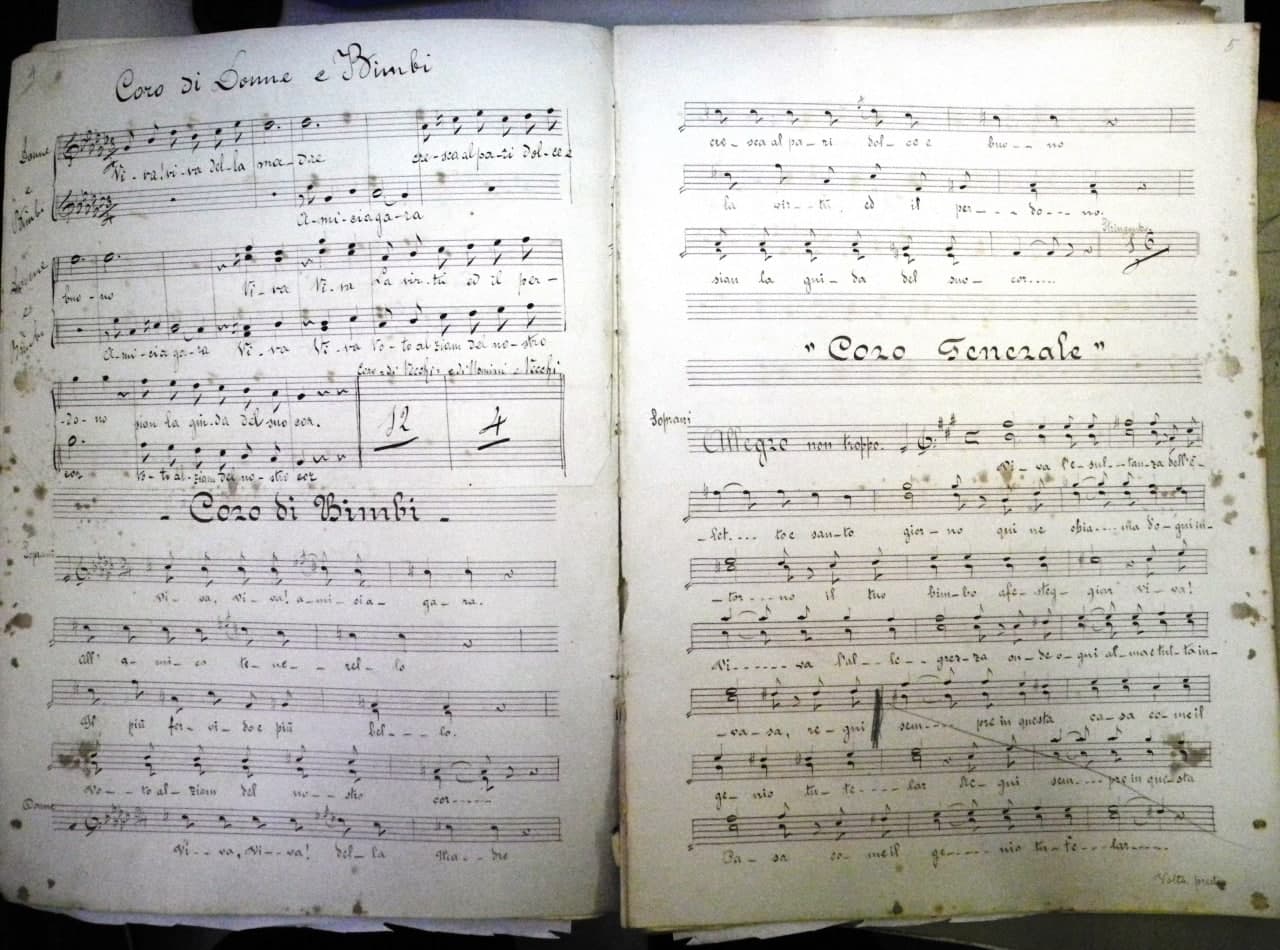 Coro di Donne e Bimbi
Donne
e
Bimbi
Vi-va! vi-va del-la ma-dre cre-sca al pa-ri dol-ce e
A-mi-ci a ga-ra
Donne
e
Bimbi
buo-no Vi-va Vi-va La vir-tù ed il per-
A-mi-ci a ga-ra Vi-va Vi-va Vo-to al ziam del no-stro
Coro di Vecchi e di Uomini e Vecchi
-do-no sian la gui-da del suo cor.
12 4
cor Vo-to al-ziam del no-stro cor
- Coro di Bimbi -
Soprani
Vi-va, vi-va! a-mi-ci a- ga-ra.
All' a-mi-co te-ne-rel-lo
Il più fer-vi-do e più bel---lo.
Vo-to al-ziam del no-stro cor-----
Donne
Vi--va, Vi-va! del-la Ma--dre
5
cre-sca al pa-ri dol-ce e buo--no
la vir-tù, ed il per---do---no.
sian la gui-da del suo- cor.....
16
"Coro Generale"
Soprani
Allegro non troppo.
Vi-va l'e-sul-tan-za dell'e-
-let.... to e san-to gior-no qui ne chia....ma do-gni in-
-tor---no il tuo bim-bo a fe-steg-giar vi-va!
Vi------va l'al-le--grez-za on-de o-gni al-ma e tut-ta in-
-va-sa, re-gni sem---- pre in questa ca-sa co-me il
ge-nio tu-te----lar Re-gni sem----pre in que-sta
Ca-sa co-me il ge-----nio tu-te----lar-----
Volta presto